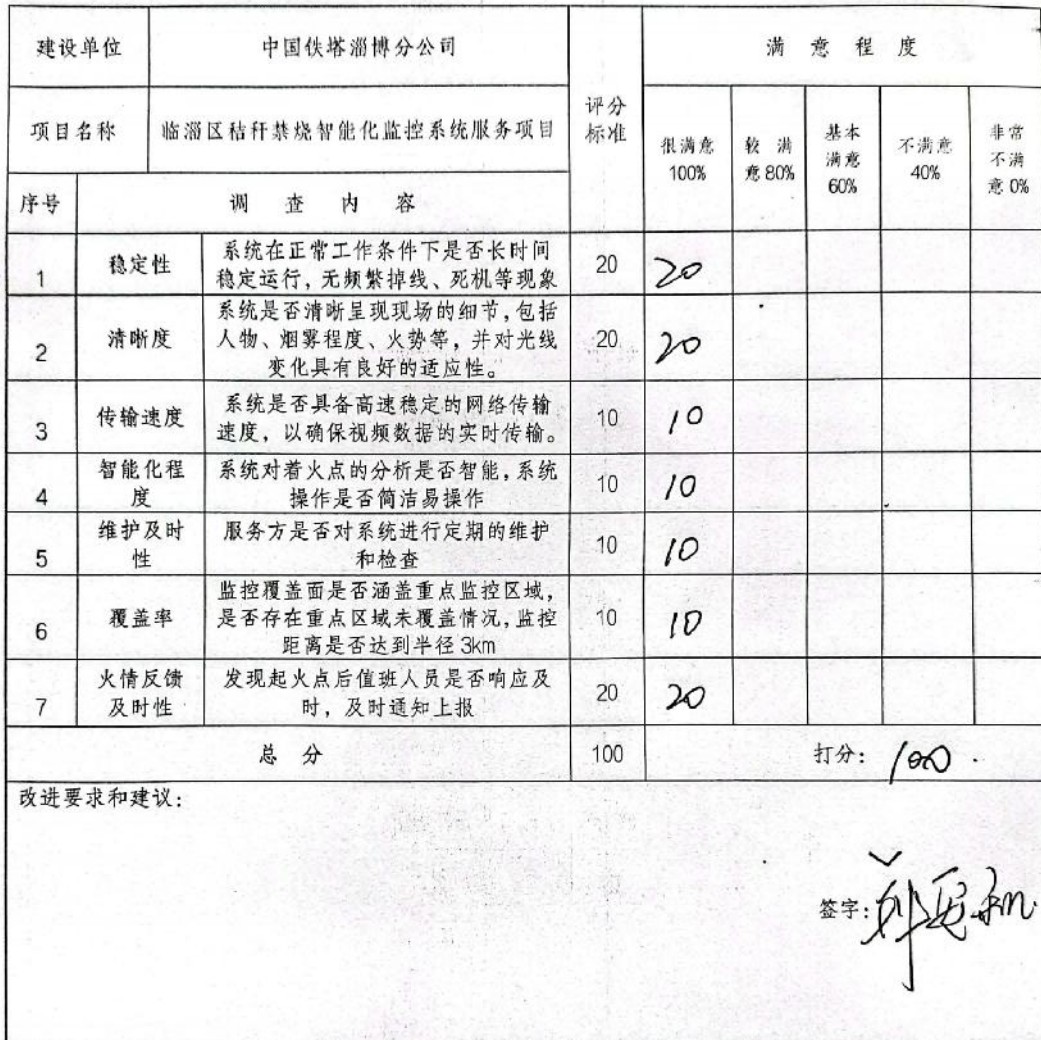 建设单位 中国铁塔淄博分公司 评分标准 满意程度
项目名称 临淄区秸秆禁烧智能化监控系统服务项目 很满意100% 较满意80% 基本满意60% 不满意40% 非常不满意0%
序号 调查内容
1 稳定性 系统在正常工作条件下是否长时间 20 20
稳定运行，无频繁掉线、死机等现象
2 清晰度 系统是否清晰呈现现场的细节，包括 20 20
人物、烟雾程度、火势等，并对光线
变化具有良好的适应性。
3 传输速度 系统是否具备高速稳定的网络传输 10 10
速度，以确保视频数据的实时传输。
4 智能化程度 系统对着火点的分析是否智能，系统 10 10
操作是否简洁易操作
5 维护及时性 服务方是否对系统进行定期的维护 10 10
和检查
6 覆盖率 监控覆盖面是否涵盖重点监控区域， 10 10
是否存在重点区域未覆盖情况，监控
距离是否达到半径3km
7 火情反馈及时性 发现起火点后值班人员是否响应及 20 20
时，及时通知上报
总分 100 打分：100
改进要求和建议：
签字：